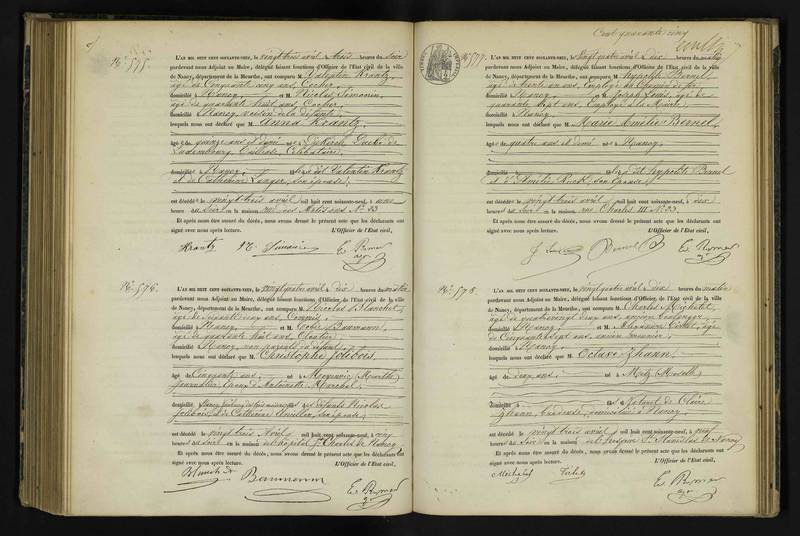 Nº 575.
L'AN MIL HUIT CENT SOIXANTE-NEUF, le vingt trois avril à trois heures du soir
pardevant nous Adjoint au Maire, délégué faisant fonctions d'Officier de l'Etat civil de la ville
de Nancy, département de la Meurthe, ont comparu M. Valentin Krantz,
âgé de Cinquante cinq ans Cocher,
domicilié à Nancy, et M. Nicolas Simonin,
âgé de quarante huit ans Cocher,
domicilié à Nancy, voisin de la défunte,
lesquels nous ont déclaré que M. Anna Krantz,
âgé de quinze ans et demi né à Diekirch Duché de
Luxembourg, Célibataire,
domicilié à Nancy, fille d'et Valentin Krantz
et de Catherine son épouse,
est décédé le vingt trois avril mil huit cent soixante-neuf, à une
heure du soir en la maison rue des Nº 23
Et après nous être assuré du décès, nous avons dressé le présent acte que les déclarants ont
signé avec nous après lecture. L'Officier de l'Etat civil,
Krantz
Nº 576.
L'AN MIL HUIT CENT SOIXANTE-NEUF, le vingt quatre avril à dix heures du matin
pardevant nous Adjoint au Maire, délégué faisant fonctions d'Officier de l'Etat civil de la ville
de Nancy, département de la Meurthe, ont comparu M. Nicolas Blanchet,
âgé de soixante ans, Commis,
domicilié à Nancy, et M. Baumann,
âgé de quarante huit ans
domicilié à Nancy, non parents du défunt,
lesquels nous ont déclaré que M. Christophe Jolibois,
âgé de Cinquante ans, né à (Meurthe)
journalier, époux de Antoinette Marchal,
domicilié Nancy, fils des défunts Nicolas
Jolibois et de Catherine son épouse,
est décédé le vingt trois avril mil huit cent soixante-neuf, à cinq
heures du soir en la maison de l'hôpital St Charles de Nancy,
Et après nous être assuré du décès, nous avons dressé le présent acte que les déclarants ont
signé avec nous après lecture. L'Officier de l'Etat civil,
Baumann
Cent quarante cinq
Nº 577.
L'AN MIL HUIT CENT SOIXANTE-NEUF, le vingt quatre avril à dix heures du matin
pardevant nous Adjoint au Maire, délégué faisant fonctions d'Officier de l'Etat civil de la ville
de Nancy, département de la Meurthe, ont comparu M. Hypolite Bernel,
âgé de trente ans, Employé au Chemin de fer,
domicilié à Nancy, et M. Joseph Louis, âgé de
quarante sept ans, Employé à la Mairie,
domicilié à Nancy,
lesquels nous ont déclaré que M. Marie Amélie Bernel,
âgé de quatre ans et demi né à Nancy,
domicilié à fille d'et Hypolite Bernel
et d'Amélie son épouse,
est décédé le vingt trois avril mil huit cent soixante-neuf, à dix
heures du soir en la maison rue Charles III Nº 23.
Et après nous être assuré du décès, nous avons dressé le présent acte que les déclarants ont
signé avec nous après lecture. L'Officier de l'Etat civil,
Bernel
Nº 578.
L'AN MIL HUIT CENT SOIXANTE-NEUF, le vingt quatre avril à dix heures du matin
pardevant nous Adjoint au Maire, délégué faisant fonctions d'Officier de l'Etat civil de la ville
de Nancy, département de la Meurthe, ont comparu M. Charles
âgé de quatre vingt deux ans, ancien boulanger,
domicilié à Nancy, et M. Alexandre âgé
de Cinquante sept ans, ancien
domicilié à Nancy,
lesquels nous ont déclaré que M. Octave Zhann,
âgé de deux ans, né à Metz (Moselle)
domicilié à fils naturel de Claire
Zhann, domiciliée à Nancy,
est décédé le vingt trois avril mil huit cent soixante-neuf, à neuf
heures du soir en la maison de l'hospice St Stanislas de Nancy
Et après nous être assuré du décès, nous avons dressé le présent acte que les déclarants ont
signé avec nous après lecture. L'Officier de l'Etat civil,